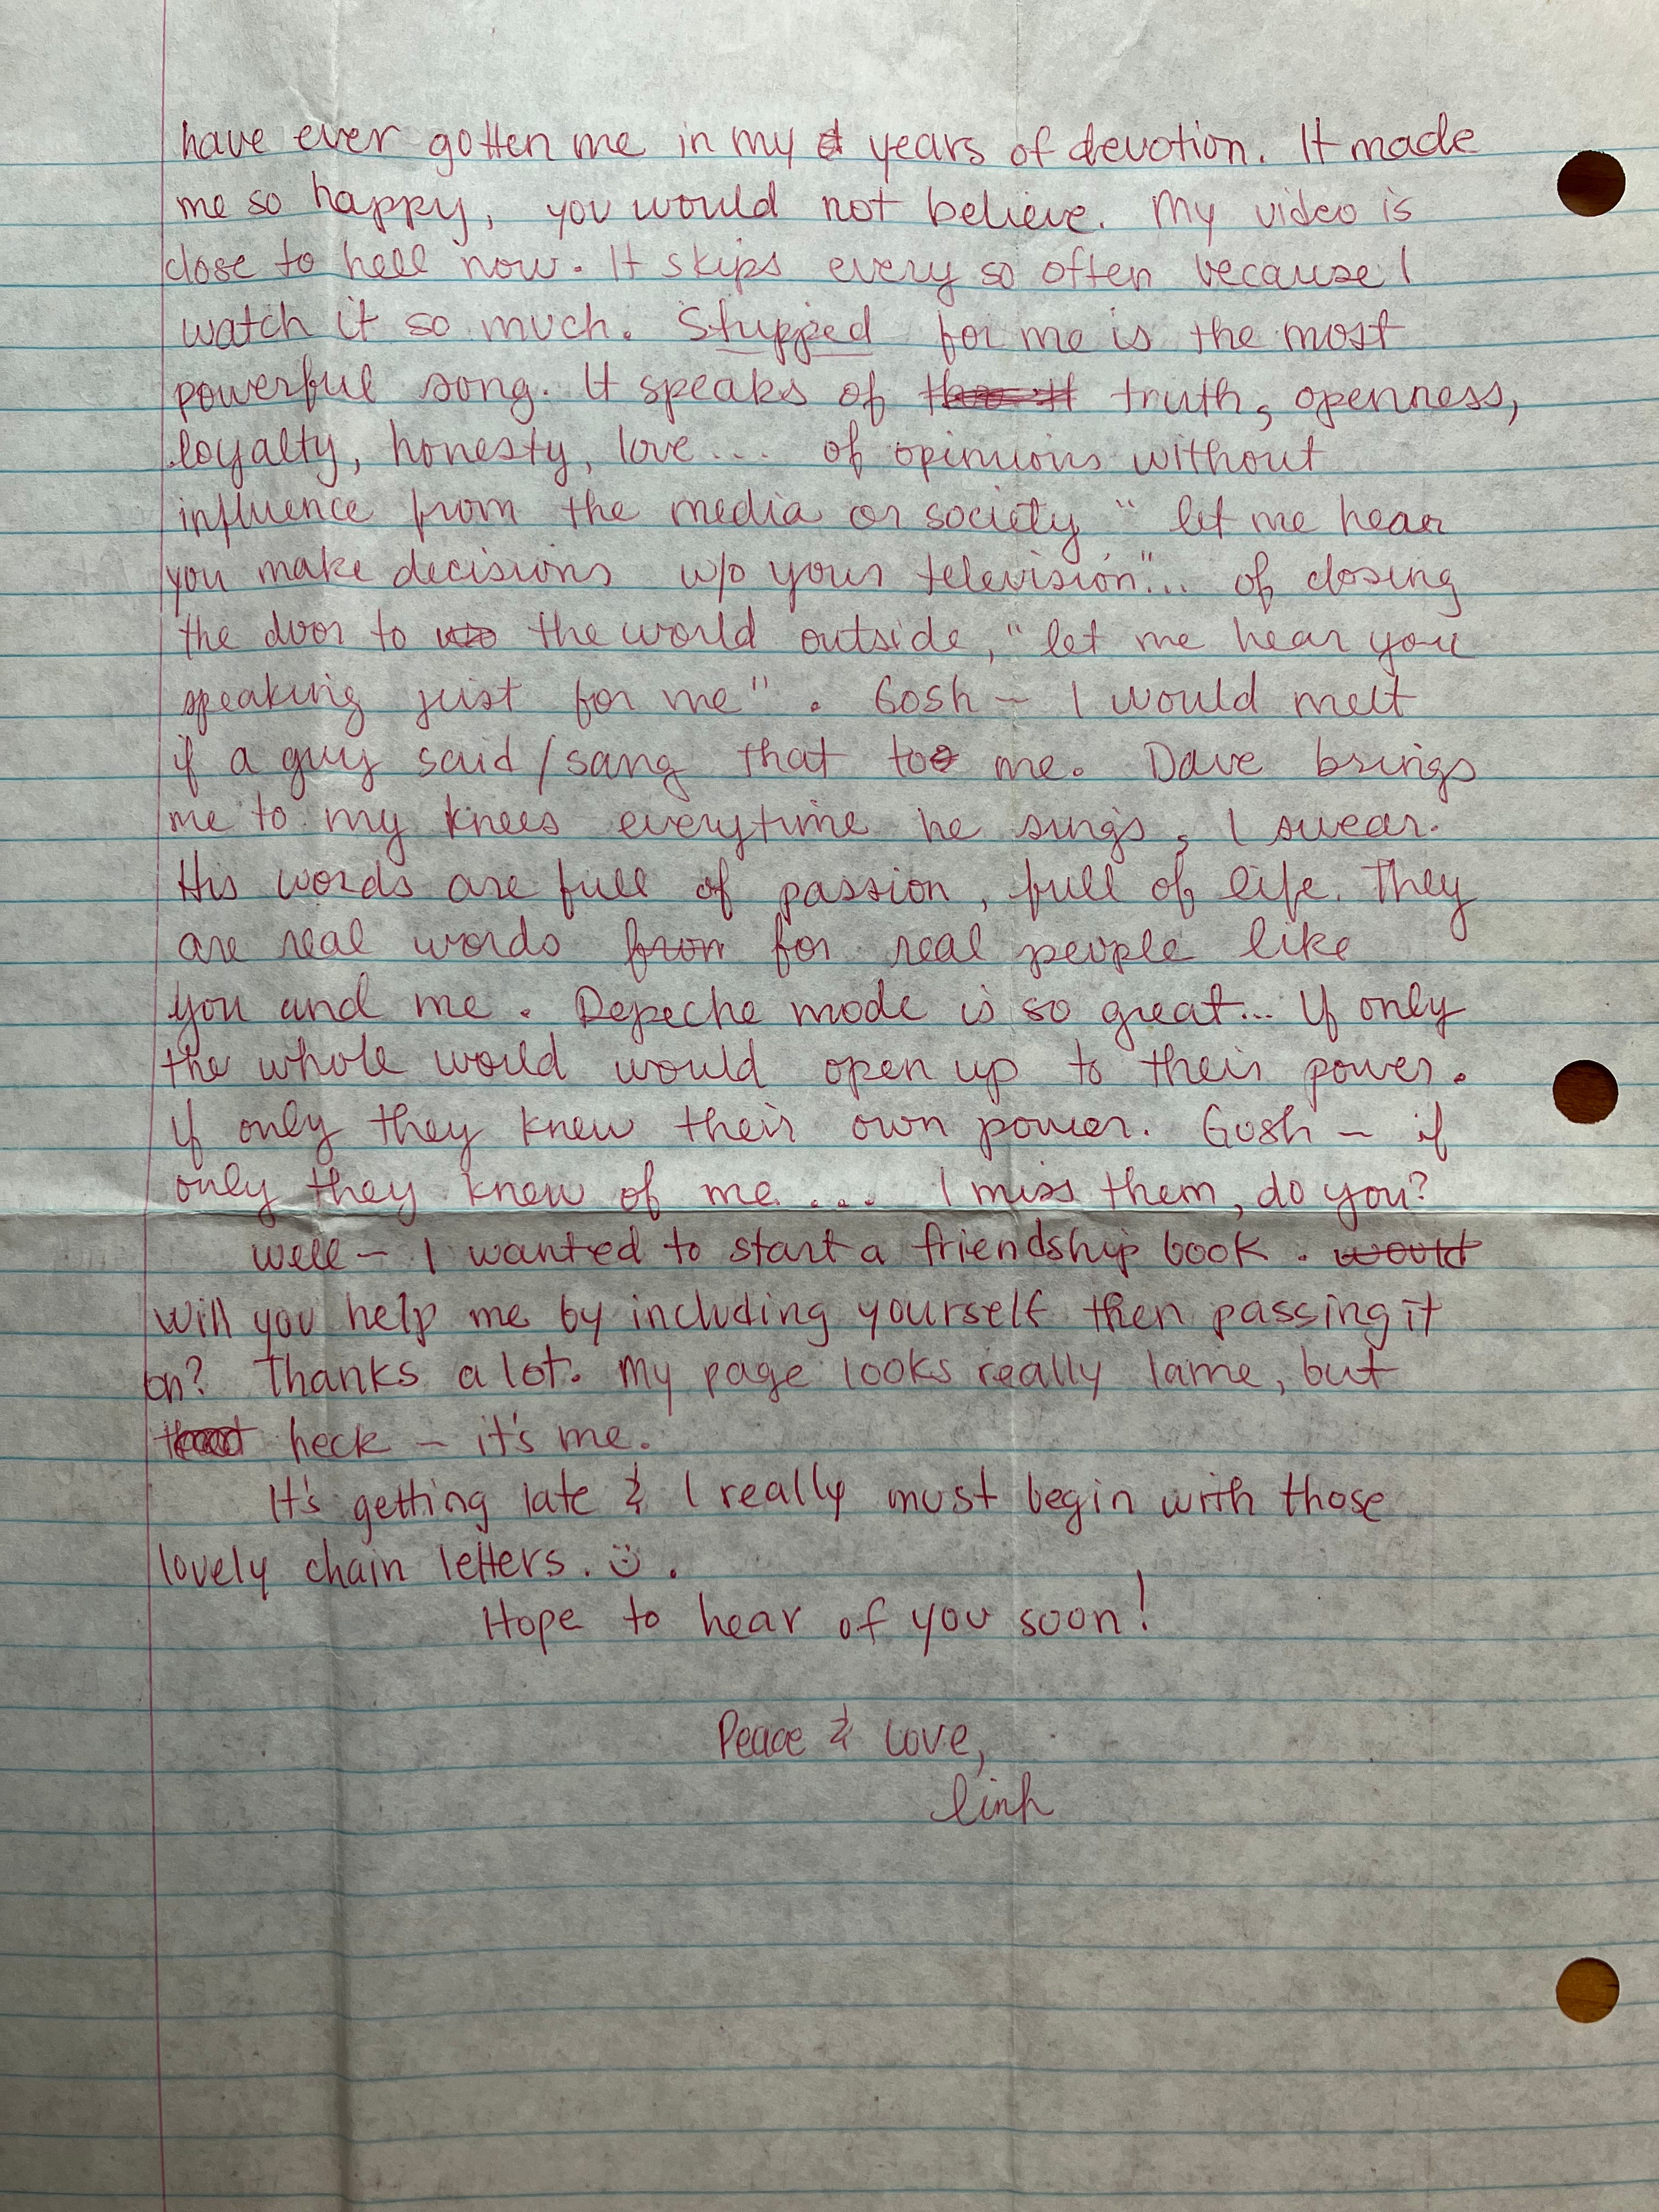 have ever gotten me in my years of devotion. It made
me so happy, you would not believe. My video is
close to hell now. It skips every so often because I
watch it so much. Stupped for me is the most
powerful song. It speaks of truth, openness,
loyalty, honesty, love... of opinuions without
influence from the media or society "let me hear
you make decisions w/o your television"... of closing
the door to the world outside, "let me hear you
speaking just for me". Gosh - I would melt
if a guy said/sang that to me. Dave brings
me to my knees everytime he sings, I swear.
His words are full of passion, full of life. They
are real words from for real people like
you and me. Depeche mode is so great... If only
the whole world would open up to their power.
If only they knew their own power. Gosh - if
only they knew of me.... I miss them, do you?
Well - I wanted to start a friendship book. would
Will you help me by including yourself then passing it
on? Thanks a lot. My page looks really lame, but
heck - it's me.
It's getting late & I really must begin with those
lovely chain letters. :).
Hope to hear of you soon!
Peace & Love,
Linh